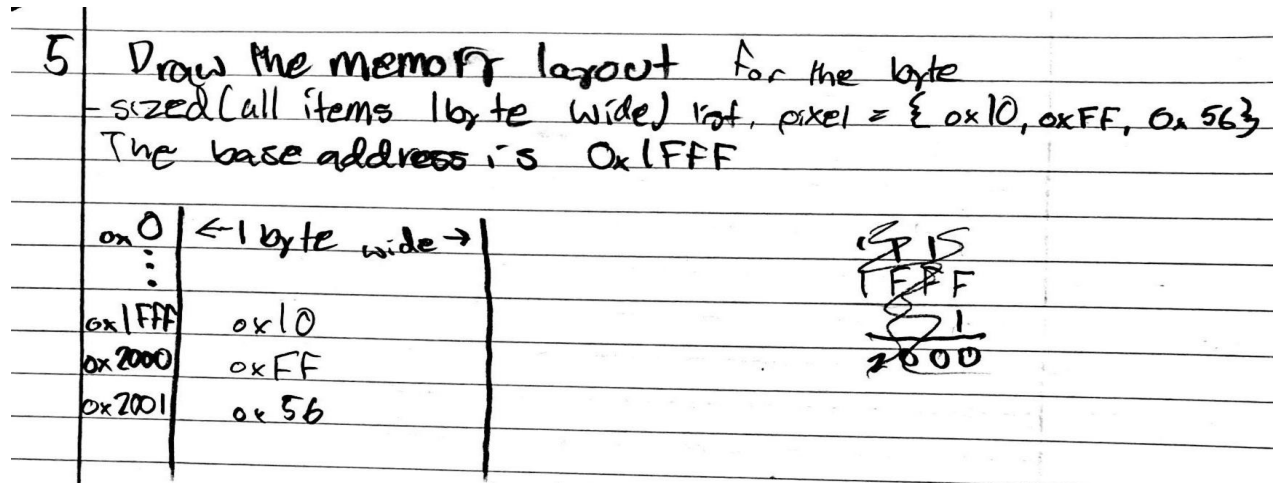 5 Draw the memory layout for the byte
-sized (all items 1 byte wide) list, pixel = { 0x10, 0xFF, 0x56}
The base address is 0x1FFF
0x0 ←1 byte wide→
⋮
0x1FFF 0x10
0x2000 0xFF
0x2001 0x56
15
1FFF
1
2000